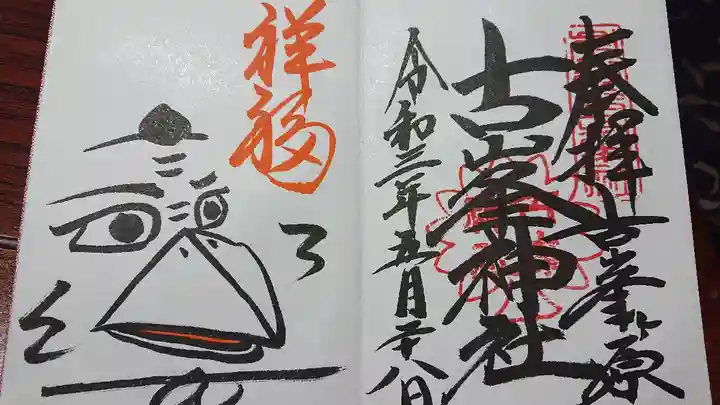 奉拝
古峯ヶ原
古峯神社
令和三年五月二十八日
祥福